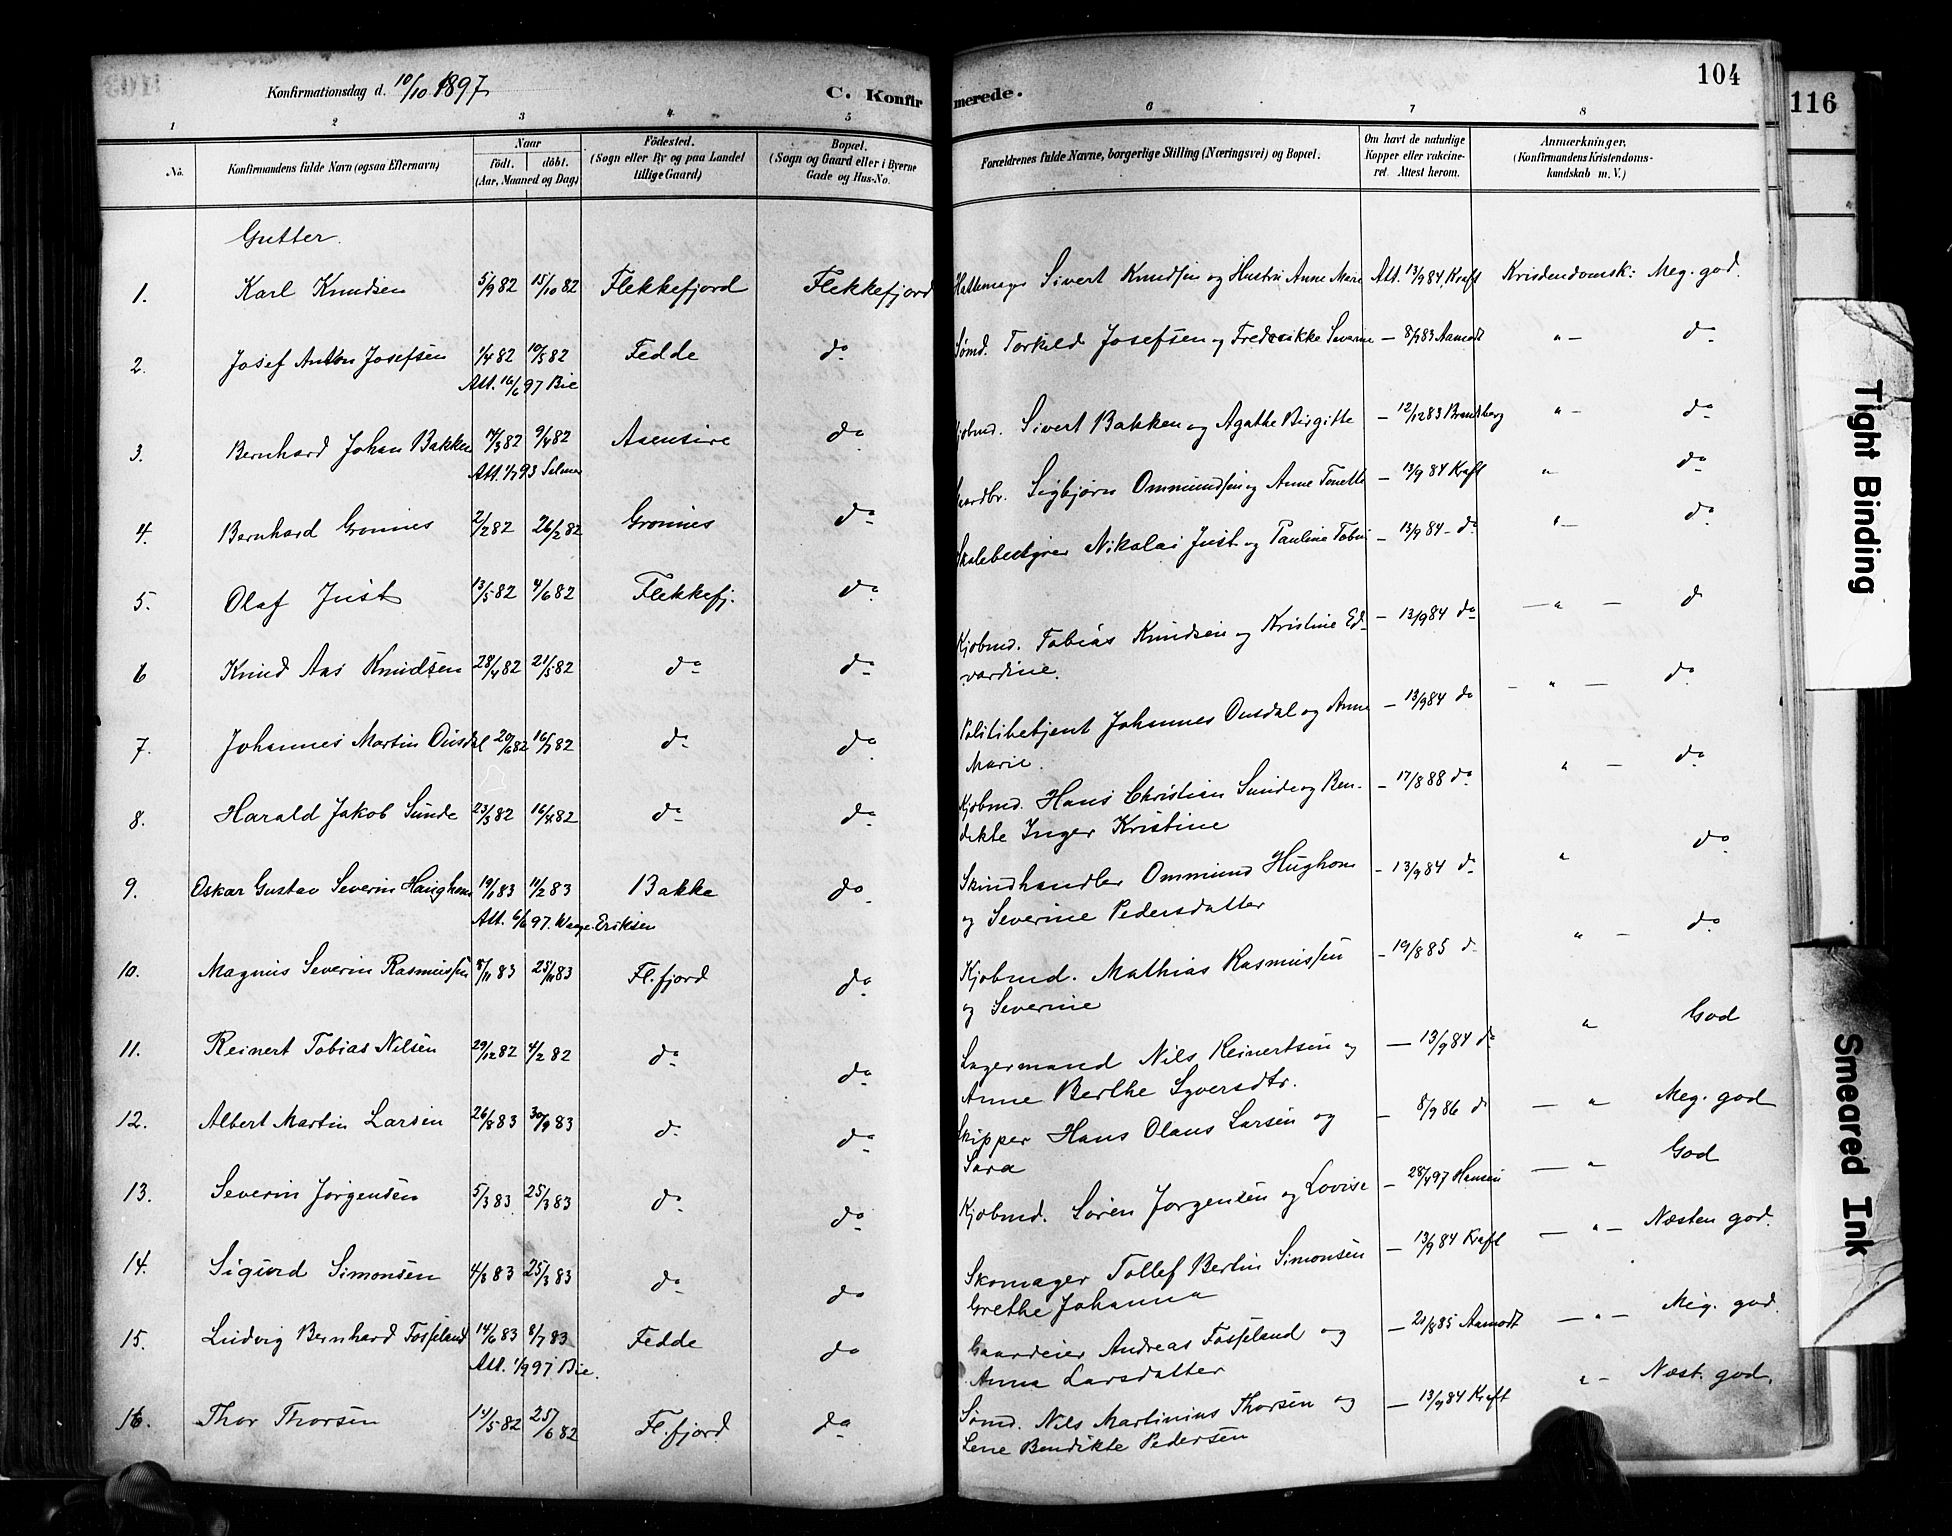 Konfirmationsdag d. 10/10 1897
C. Konfirmerede.
104
116
1 2 3 4 5 6 7 8
No. Konfirmandens fulde Navn (ogsaa Efternavn) Naar født. døbt. (Aar, Maaned og Dag) Födested. (Sogn eller By og paa Landet tillige Gaard) Bopæl. (Sogn og Gaard eller i Byerne Gade og Hus-No. Forældrenes fulde Navne, borgerlige Stilling (Næringsvei) og Bopæl. Om havt de naturlige Kopper eller vakcineret. Attest herom. Anmærkninger. (Konfirmandens Kristendomskundskab m. V.)
Gutter.
1. Karl Knudsen 5/9 82 15/10 82 Flekkefjord Flekkefjord Hattemager Sivert Knudsen og Hustru Anne Marie Att. 13/9 84 Kraft Kristendomsk: Meg. god.
2. Josef Anton Josefsen 1/4 82 10/5 82 Fedde do Sømd. Torkild Josefsen og Fredrikke Severine — 8/9 83 Aamodt " — do
Att. 16/6 97 Bie
3. Bernhard Johan Bakken 14/3 82 9/4 82 Aaensire do Kjøbmd. Sivert Bakken og Agathe Birgitte — 12/12 83 Brandsberg " — do
Att. 1/7 93 Selmer
4. Bernhard Grønnes 2/2 82 26/2 82 Grønnes do Gaardbr. Sigbjørn Ommundsen og Anne Tonette — 13/9 84 Kraft " do
5. Olaf Just 13/5 82 4/6 82 Flekkefj. do Skolebestyrer Nikolai Just og Pauline — 13/9 84 — do " — do
6 Knud Aas Knudsen 28/4 82 21/5 82 do do Kjøbmd. Tobias Knudsen og Kristine Ed- — 13/9 84 do — " — d
vardine.
7. Johannes Martin Ousdal 20/6 82 16/7 82 do do Politibetjent Johannes Ousdal og Anne — 13/9 84 do — " — do
Marie.
8. Harald Jakob Sunde 23/3 82 16/4 82 do do Kjøbmd. Hans Christian Sunde og Ben- — 17/8 88 do " — do
dikte Inger Kristine
9. Oskar Gustav Severin Haughom 19/1 83 11/2 83 Bakke do Skindhandler Ommund Hughom — 13/9 84 do " do
Att. 6/6 97. Waage-Eriksen og Severine Pedersdatter
10. Magnus Severin Rasmussen 8/11 83 25/11 83 Fl.fjord do Kjøbmd. Mathias Rasmussen — 19/8 85 do " — do
og Severine
11. Reinert Tobias Nilsen 29/12 82 4/2 82 do do Lagermand Nils Reinertsen og — 13/9 84 do " God
Anne Berthe Syversdtr.
12. Albert Martin Larsen 26/8 83 30/9 83 do do Skipper Hans Olaus Larsen og — 8/9 86 do — " Meg. god
Sara
13. Severin Jørgensen 5/3 83 25/3 83 do do Kjøbmd. Søren Jørgensen og Lovise — 28/4 97 Hansen — " God
14. Sigurd Simonsen 4/3 83 25/3 83 do do Skomager Tollef Bertin Simonsen — 13/9 84 Kraft — " — Næsten god.
Grethe Johanna
15. Ludvig Bernhard Fosseland 14/6 83 8/7 83 Fedde do Gaardeier Andreas Fosseland og — 21/8 85 Aamodt — " — Meg. god.
Att. 1/9 97 Bie. Anna Larsdatter
16. Thor Thorsen 14/5 82 25/6 82 Fl.fjord do Sømd. Nils Martinius Thorsen og — 13/9 84 Kraft " — Næst. god.
Lene Bendikte Pedersen
Tight Binding
Smeared Ink